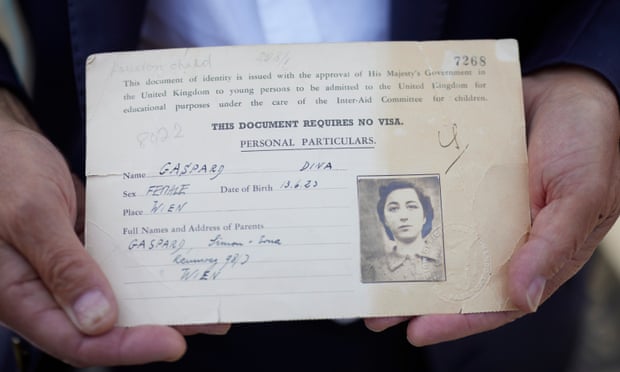 7268
This document of identity is issued with the approval of His Majesty's Government in
the United Kingdom to young persons to be admitted to the United Kingdom for
educational purposes under the care of the Inter-Aid Committee for children.
8022
THIS DOCUMENT REQUIRES NO VISA.
PERSONAL PARTICULARS.
Name GASPARD DINA
Sex FEMALE Date of Birth 13.6.23
Place WIEN
Full Names and Address of Parents
GASPARD Simon
Rennweg
WIEN